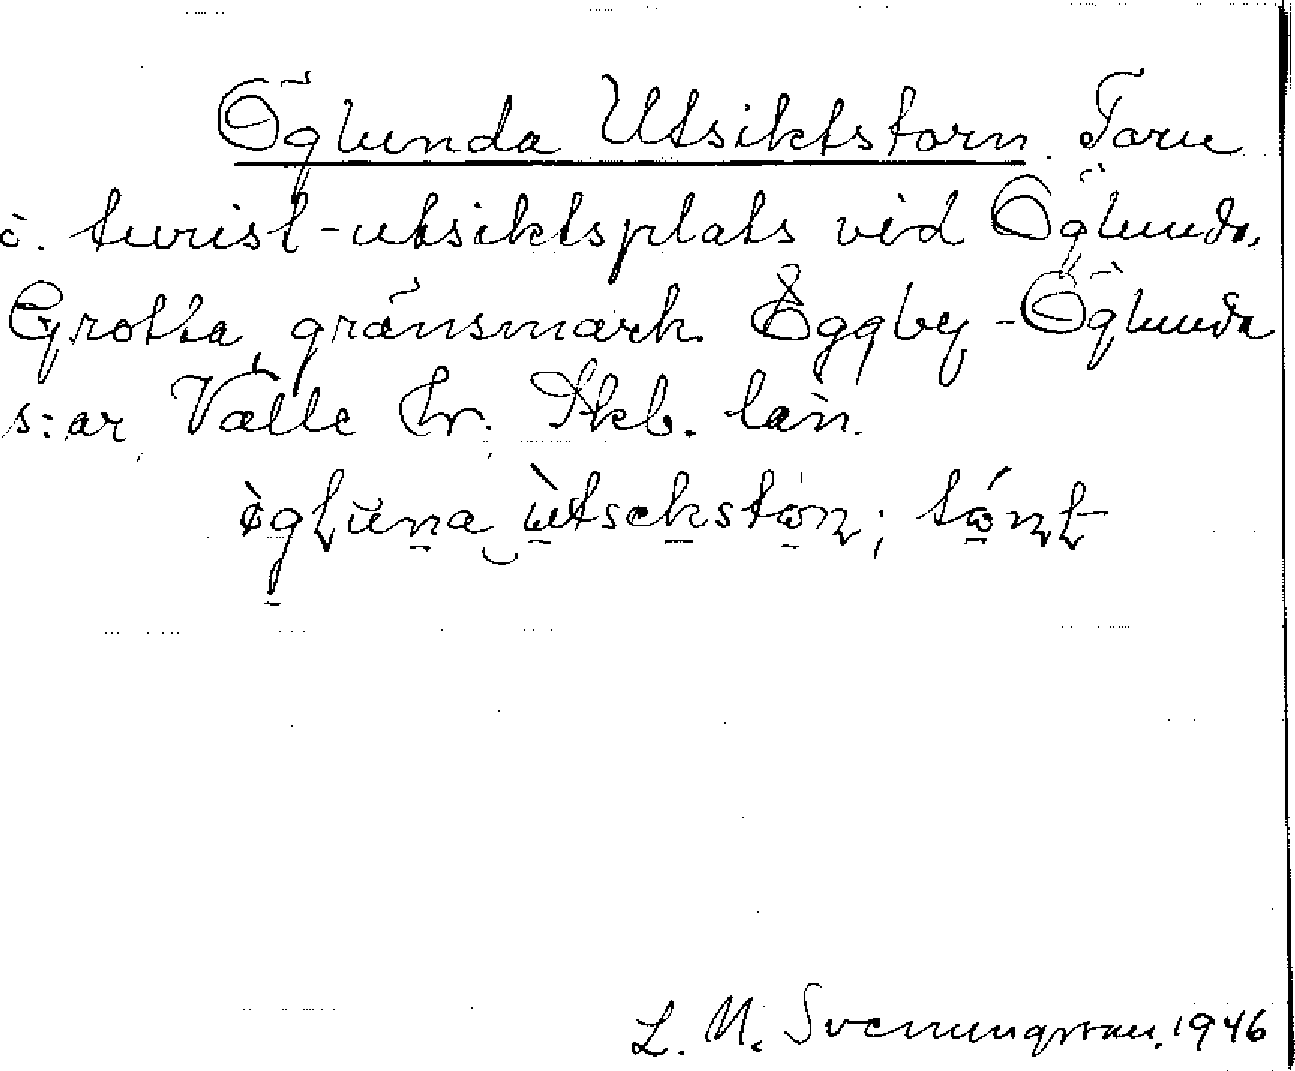 Öglunda Utsiktstorn. Torn
o. turist-utsiktsplats vid Öglunda,
Grotta, gränsmark. Eggby - Öglunda
s:ar, Valle hr. Skb. län.
L. M. Svenungsson, 1946